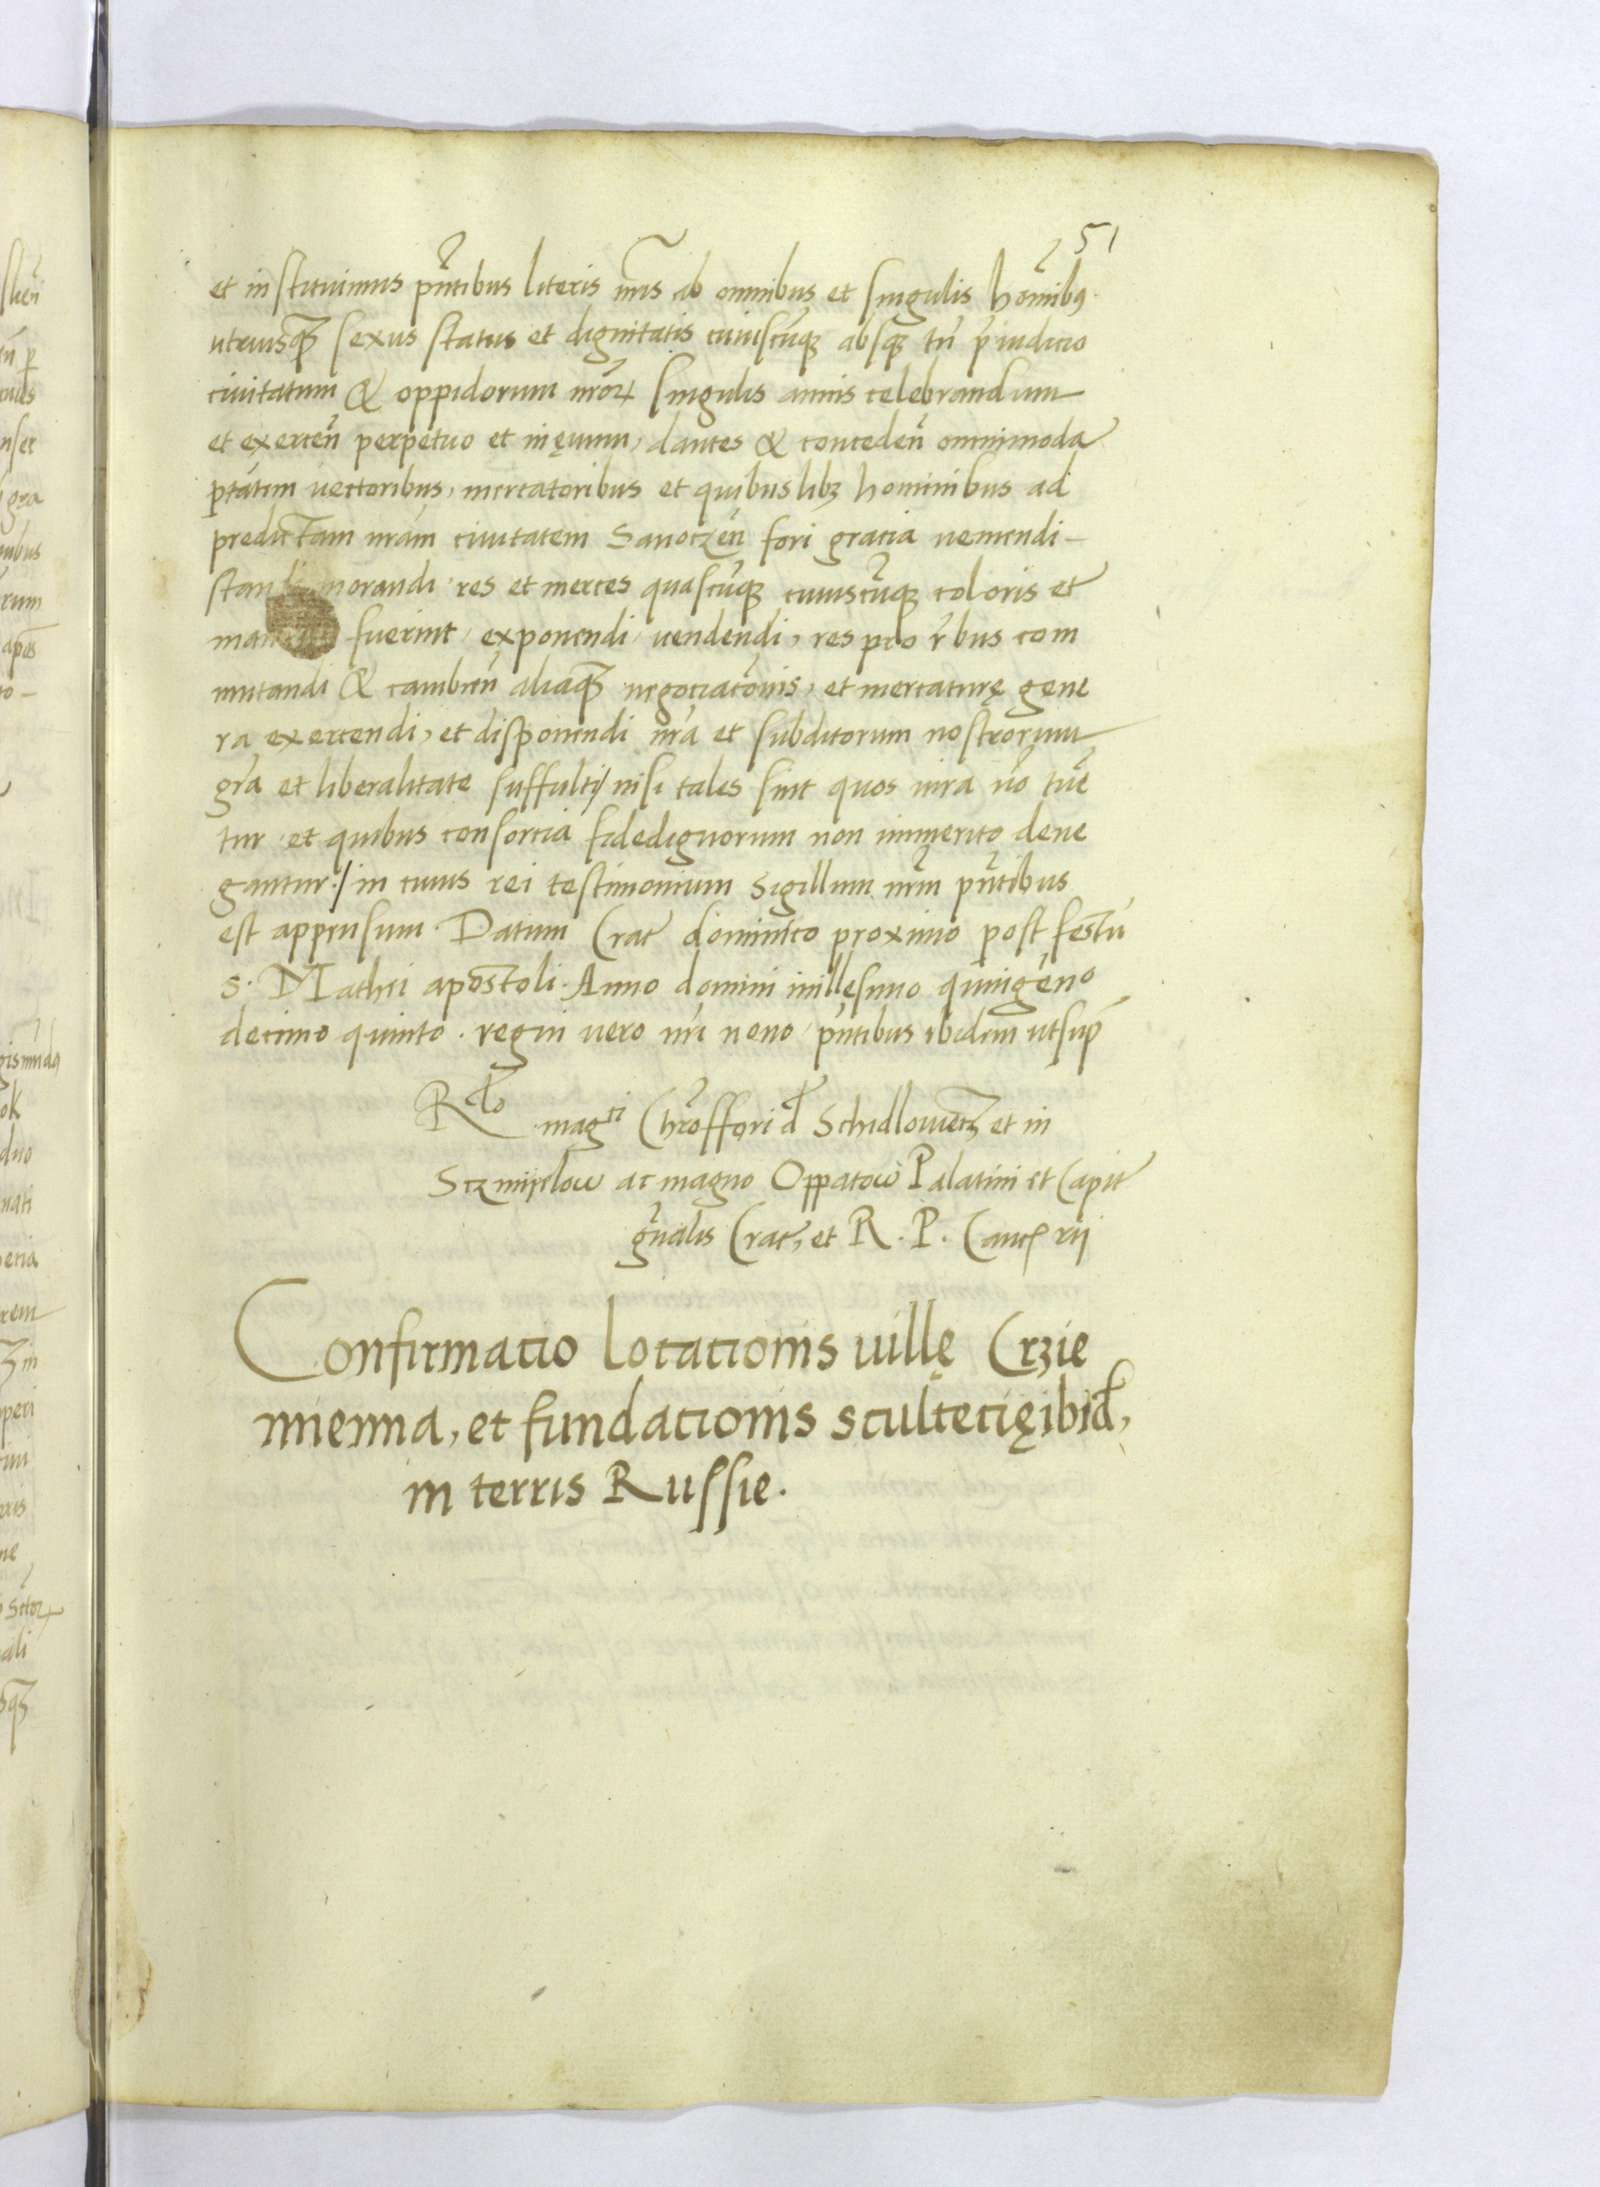 51
et instituimus pñtibus literis nr̃is ab omnibus et singulis hom̃ibꝰ
utriusqꝫ sexus status et dignitatis cuiuscũqꝫ absqꝫ tñ p̃iudicio
civitatum & oppidorum nrõꝝ singulis annis celebrandum
et exercẽn perpetuo et in ęuum, dantes & concedeñ omnimodã
ptãtem vectoribus, mercatoribus et quibuslibꝫ hominibus ad
predictam nrãm civitatem Sanoczeñ fori gracia veniendi
standi morandi, res et merces quascũqꝫ cuiuscũqꝫ coloris et
fuerint, exponendi, vendendi, res pro rebus com
mutandi & cambieñ aliasqꝫ negociacõnis, et mercaturę gene
ra exercendi, et disponendi nrã et subditorum nostrorum
gr̃a et liberalitate suffulti / nisi tales sint quos iura nõ tuẽ
tur et quibus consorcia fidedignorum non immerito dene
gantur / in cuius rei testimonium Sigillum nrm̃ pñtibus
est appensum. Datum Crac̃ dominico proximo post festũ
S. Mathei apostoli. Anno domini millesimo quingẽno
decimo quinto. regni vero nr̃i nono, pñtibus ibidem utsup̃
Rlo magci Chr̃offori d Schidlowecz et in
Sczmijelow ac magno Oppatow Palatini et Capit̃
gñalis Crac̃, et R. P. Canc̃ rii
Confirmatio locationis villę Crzie
mienna, et fundationis scultecię ibid̃,
in terris Russie.